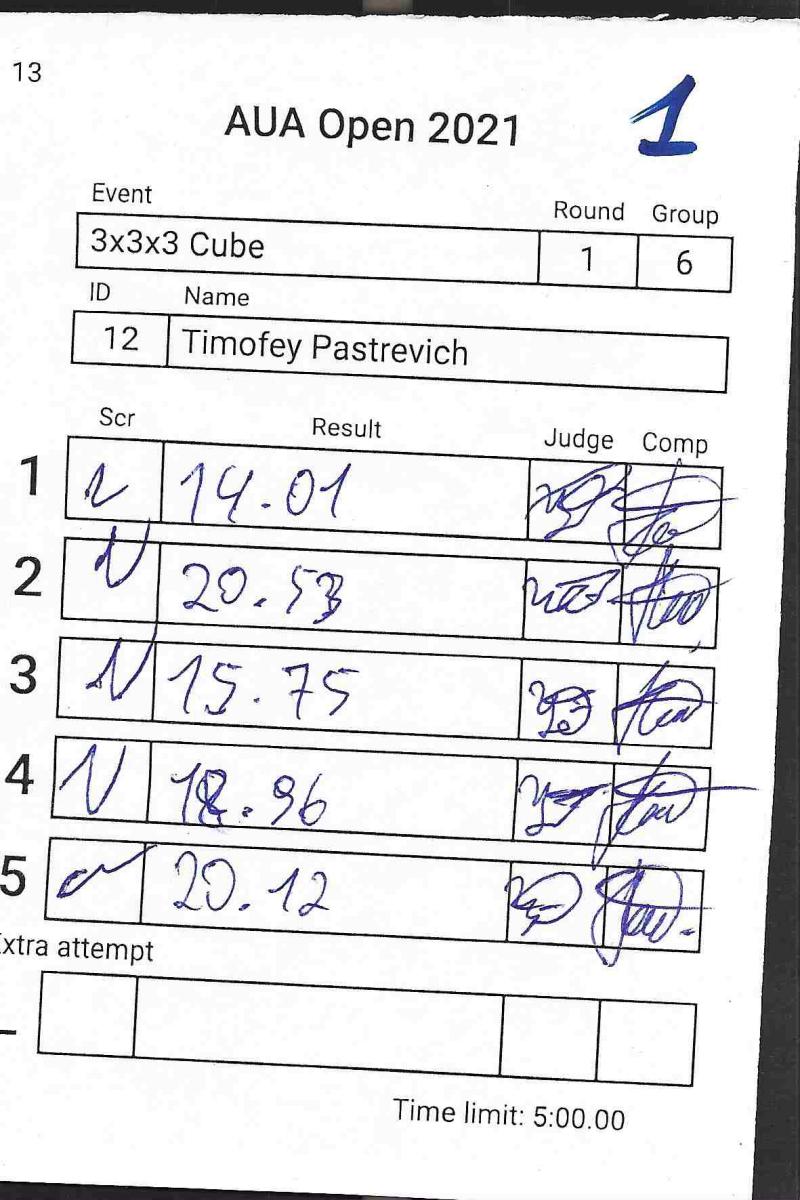 13
AUA Open 2021
1
Event Round Group
3x3x3 Cube 1 6
ID Name
12 Timofey Pastrevich
Scr Result Judge Comp
1 14.01
2 20.53
3 15.75
4 18.96
5 20.12
Extra attempt
_
Time limit: 5:00.00